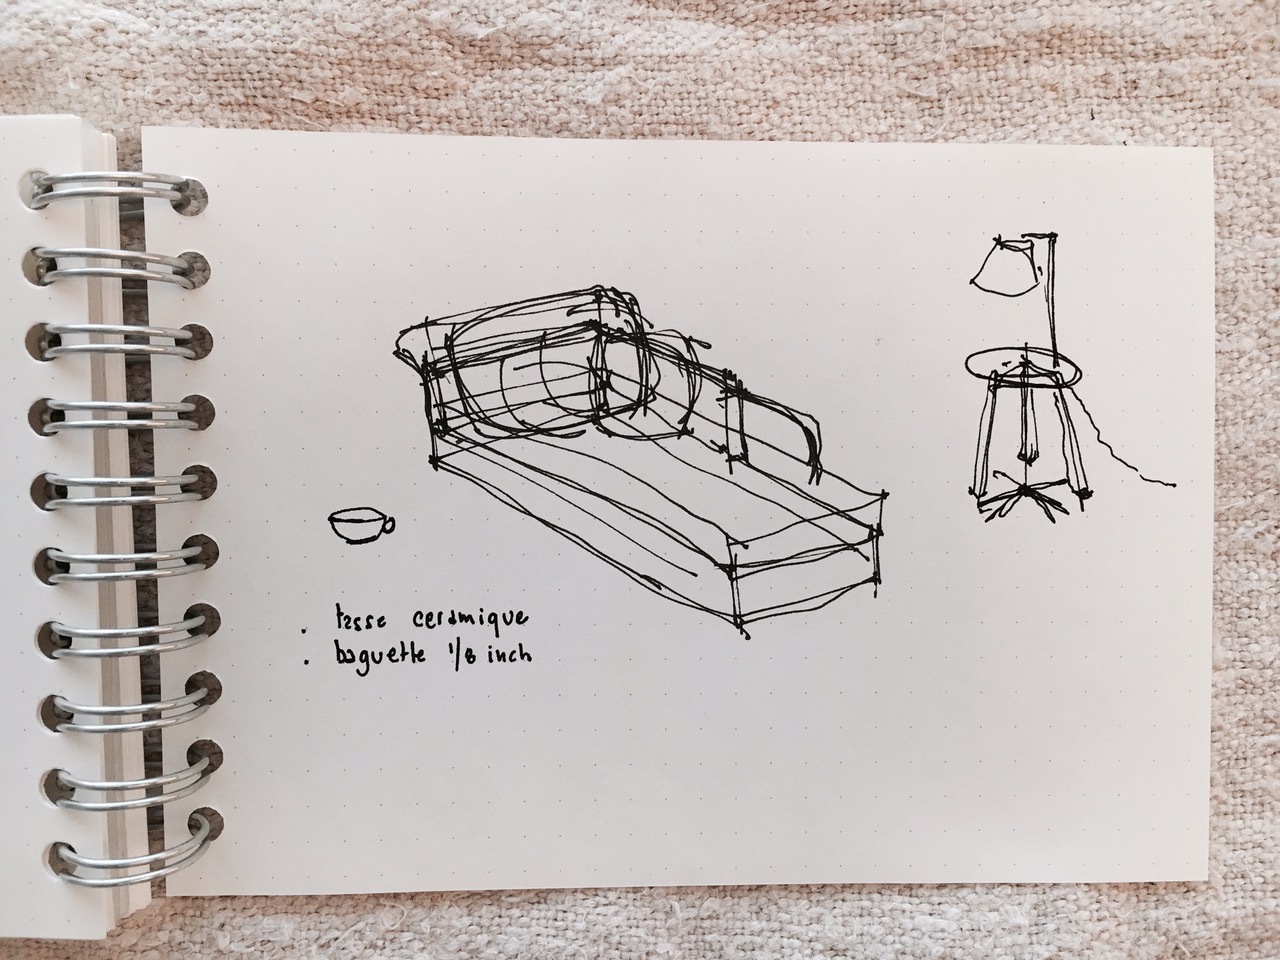 . tasse ceramique
. baguette 1/8 inch